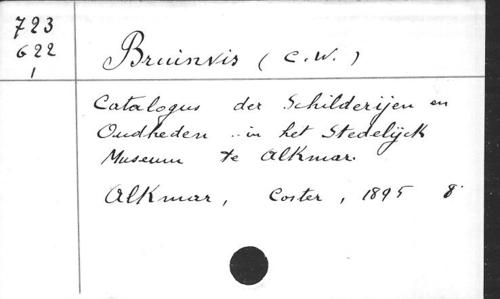 723
622
1
Bruinvis (C. W.)
Catalogus der Schilderijen en
Oudheden .. in het Stedelijck
Museum te Alkmar.
Alkmar, Coster, 1895 8°